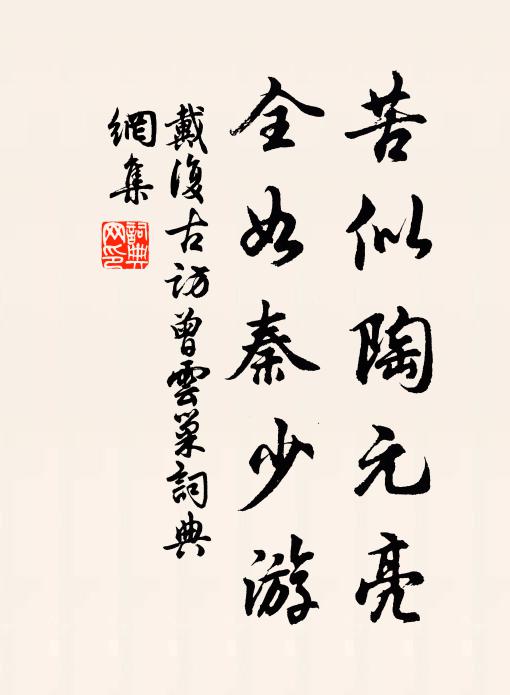 苦似陶元亮
全如秦少游
戴復古訪曾雲巢詞典
網集
詞典網印